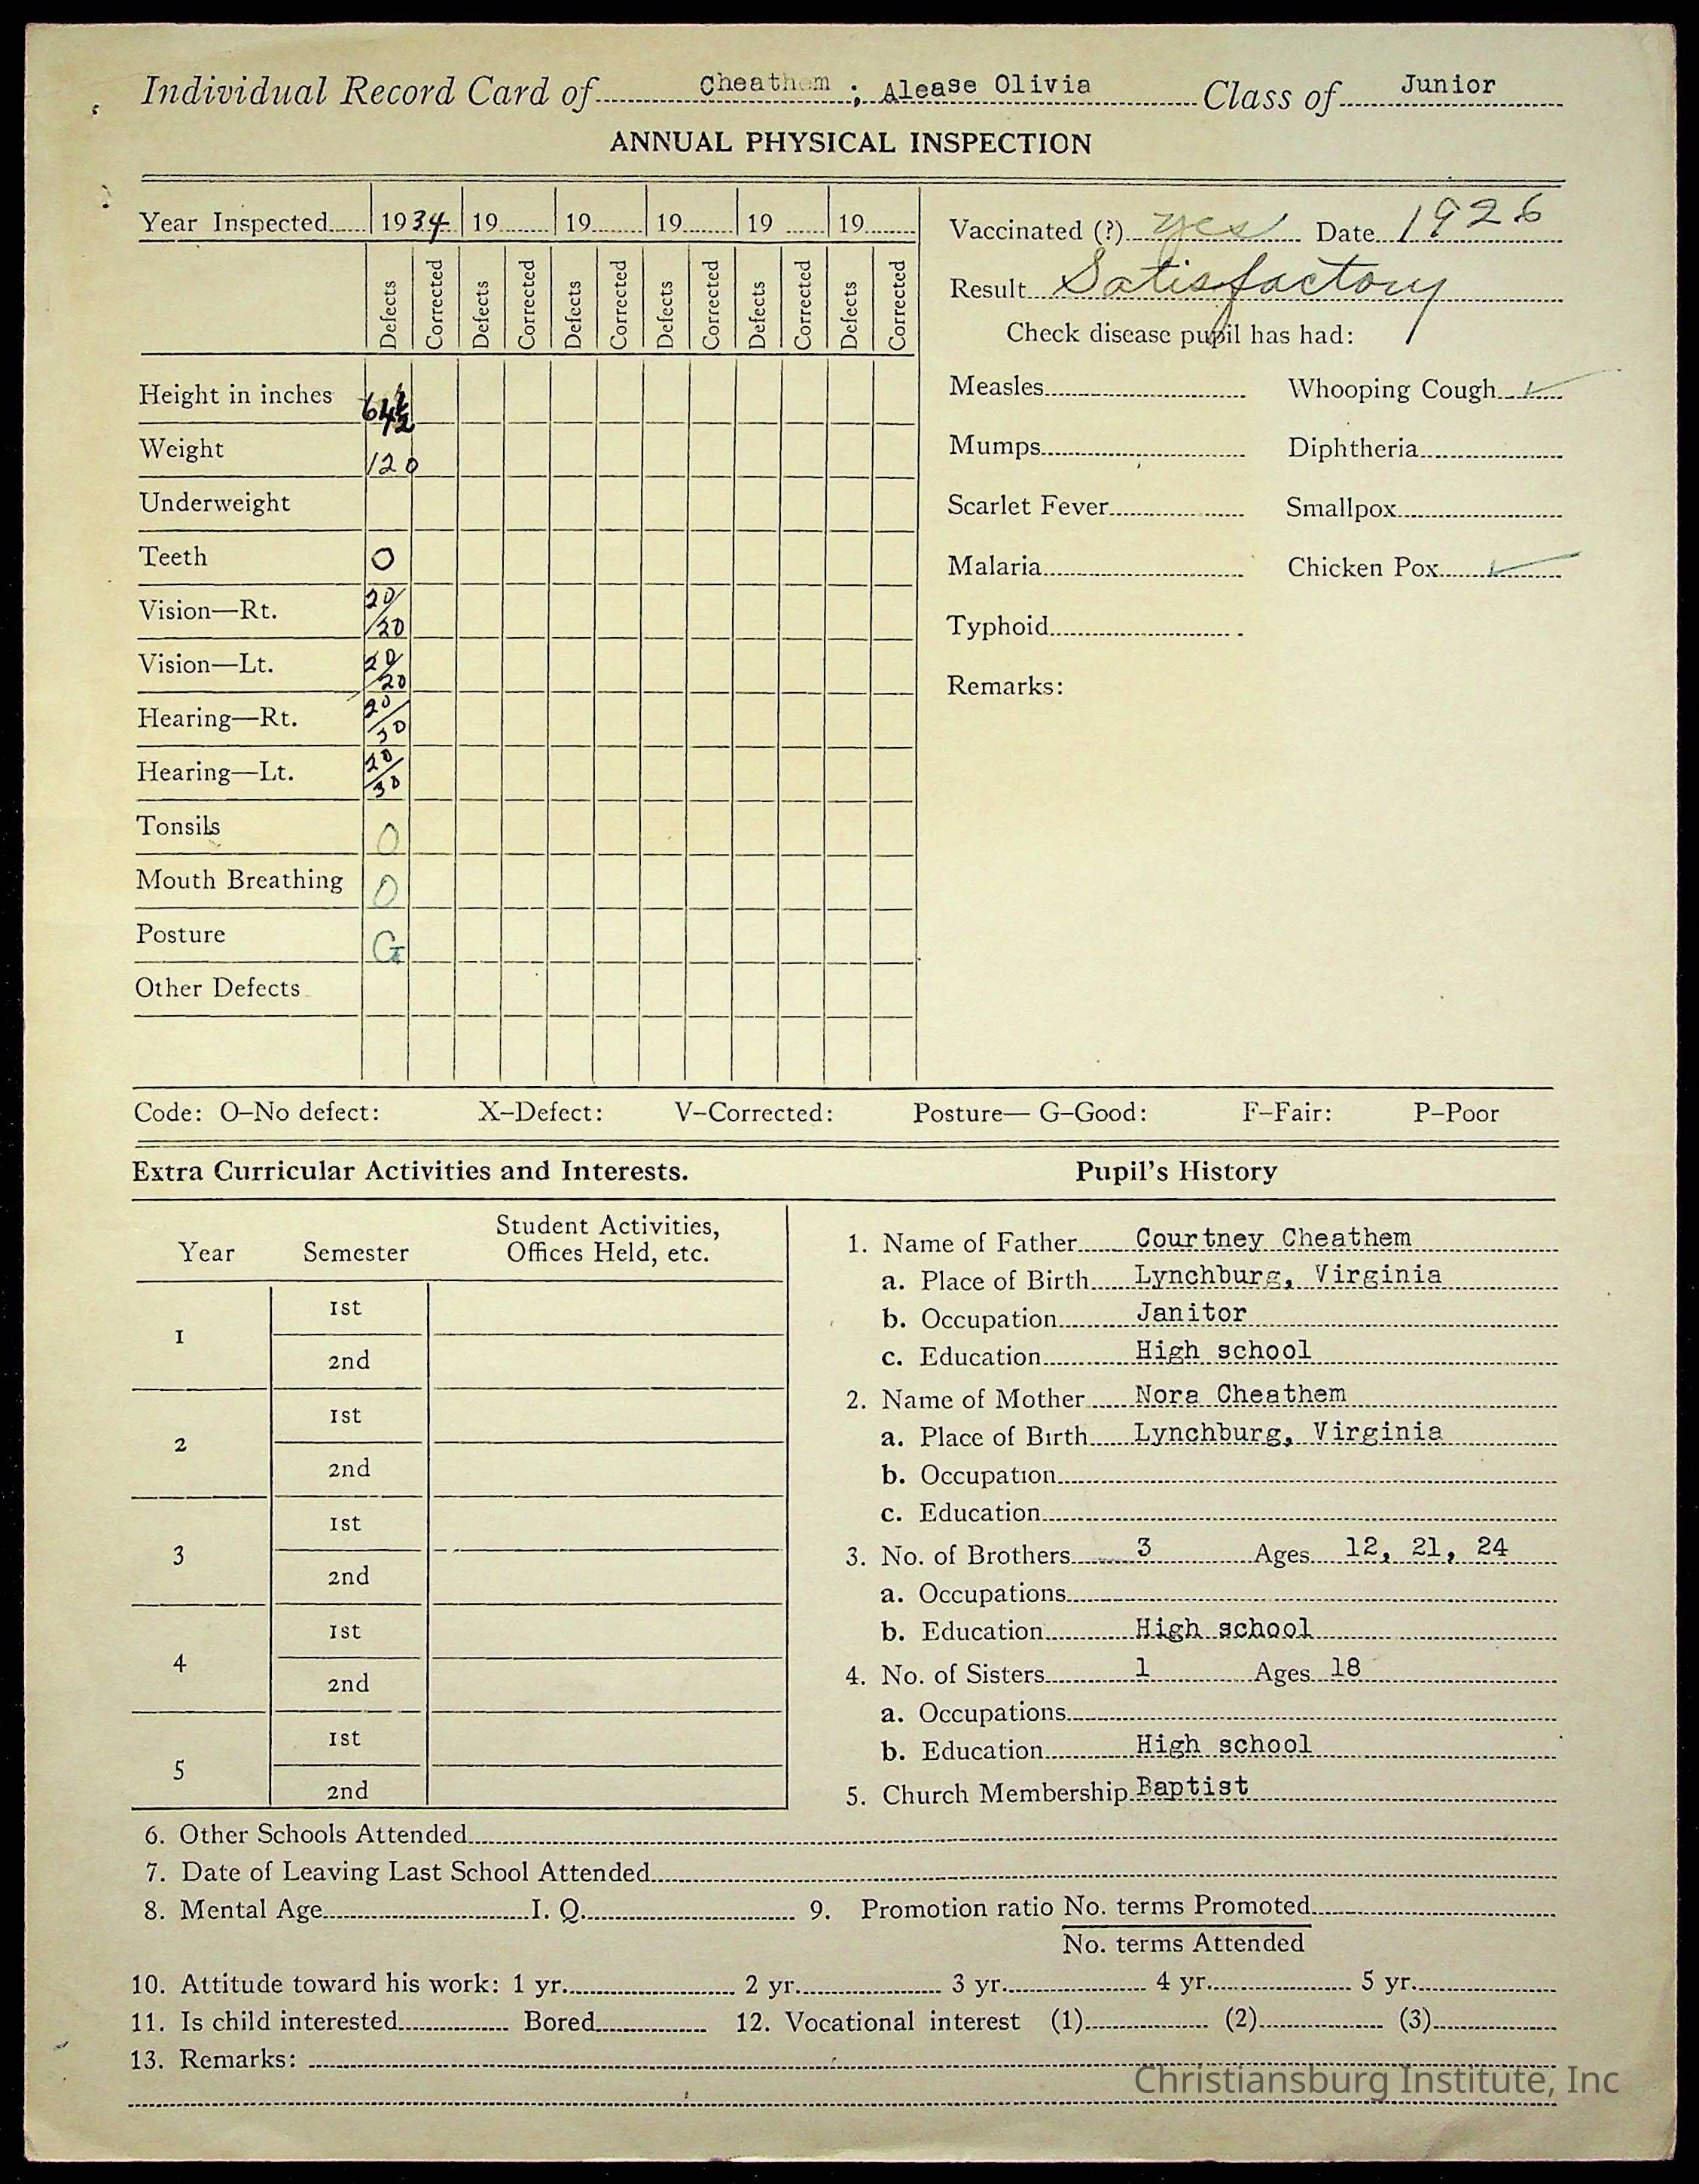 Individual Record Card of Cheathem ; Alease Olivia Class of Junior
ANNUAL PHYSICAL INSPECTION
Year Inspected 1934 19 19 19 19 19
Defects Corrected Defects Corrected Defects Corrected Defects Corrected Defects Corrected Defects Corrected
Height in inches 64½
Weight 120
Underweight
Teeth O
Vision—Rt. 20/20
Vision—Lt. 20/20
Hearing—Rt. 20/30
Hearing—Lt. 20/30
Tonsils O
Mouth Breathing O
Posture G
Other Defects
Vaccinated (?) yes Date 1926
Result Satisfactory
Check disease pupil has had:
Measles Whooping Cough ✓
Mumps Diphtheria
Scarlet Fever Smallpox
Malaria Chicken Pox ✓
Typhoid
Remarks:
Code: O–No defect: X–Defect: V–Corrected: Posture— G–Good: F–Fair: P–Poor
Extra Curricular Activities and Interests.
Year Semester Student Activities,
Offices Held, etc.
1 1st
2nd
2 1st
2nd
3 1st
2nd
4 1st
2nd
5 1st
2nd
Pupil's History
1. Name of Father Courtney Cheathem
a. Place of Birth Lynchburg, Virginia
b. Occupation Janitor
c. Education High school
2. Name of Mother Nora Cheathem
a. Place of Birth Lynchburg, Virginia
b. Occupation
c. Education
3. No. of Brothers 3 Ages 12, 21, 24
a. Occupations
b. Education High school
4. No. of Sisters 1 Ages 18
a. Occupations
b. Education High school
5. Church Membership Baptist
6. Other Schools Attended
7. Date of Leaving Last School Attended
8. Mental Age I. Q. 9. Promotion ratio No. terms Promoted
No. terms Attended
10. Attitude toward his work: 1 yr. 2 yr. 3 yr. 4 yr. 5 yr.
11. Is child interested Bored 12. Vocational interest (1) (2) (3)
13. Remarks:
Christiansburg Institute, Inc